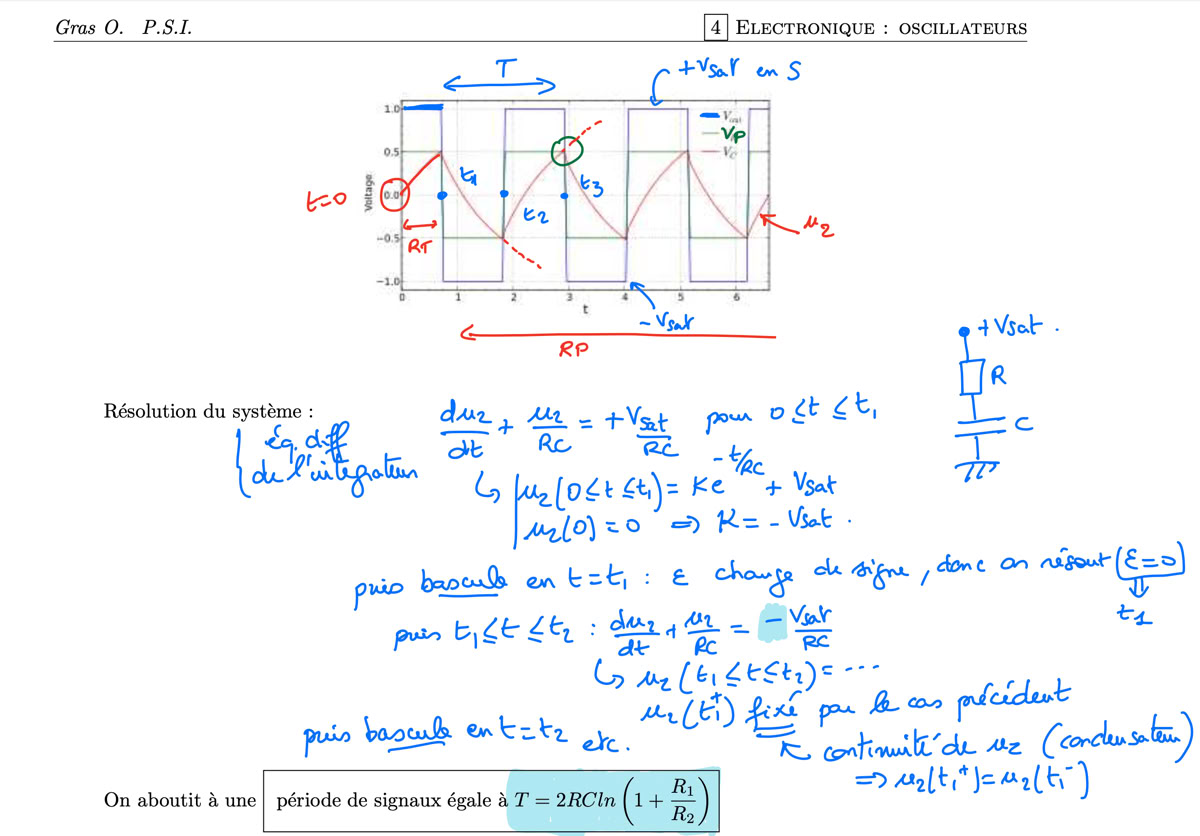 Gras O. P.S.I.
4 ELECTRONIQUE : OSCILLATEURS
T
+Vsat en S
1.0
0.5
0.0
−0.5
−1.0
Voltage
0 1 2 3 4 5 6
t
Vout
VP
VC
t=0
RT
t1
t2
t3
u2
- Vsat
RP
+ Vsat .
R
C
Résolution du système :
éq. diff
de l'intégrateur
du2/dt + u2/RC = +Vsat/RC pour 0 ≤ t ≤ t1
↳ u2(0≤t≤t1) = Ke^(-t/RC) + Vsat
u2(0) = 0 ⇒ K = - Vsat .
puis bascule en t=t1 : ε change de signe, donc on résout (ε=0)
⇓
t1
puis t1 ≤ t ≤ t2 : du2/dt + u2/RC = - Vsat/RC
↳ u2(t1≤t≤t2) = ...
u2(t1+) fixé par le cas précédent
puis bascule en t=t2 etc.
continuité de u2 (condensateur)
⇒ u2(t1+) = u2(t1-)
On aboutit à une période de signaux égale à T = 2RCln (1 + R1/R2)